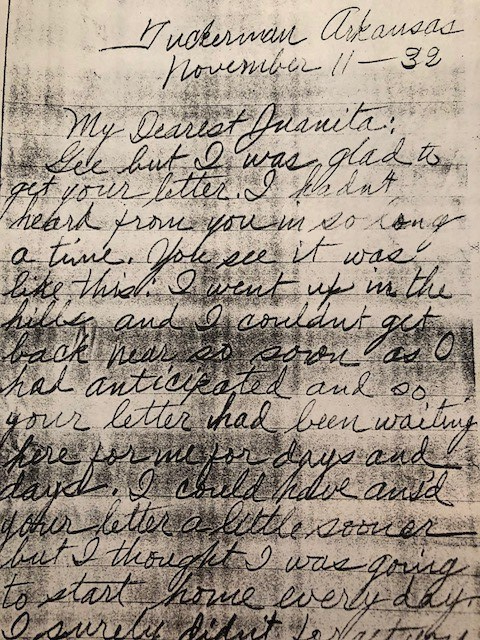 Tuckerman Arkansas
November 11-32
My Dearest Juanita:
Gee but I was glad to
get your letter. I hadnt
heard from you in so long
a time. You see it was
like this: I went up in the
hills and I couldnt get
back near so soon as I
had anticipated and so
your letter had been waiting
here for me for days and
days. I could have ans'd
your letter a little sooner
but I thought I was going
to start home every day.
I surely didnt